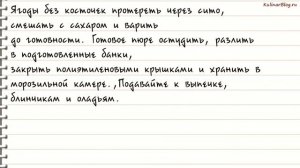 KulinarBlog.ru
Ягоды без косточек протереть через сито,
смешать с сахаром и варить
до готовности. Готовое пюре остудить, разлить
в подготовленные банки,
закрыть полиэтиленовыми крышками и хранить в
морозильной камере. ,Подавайте к выпечке,
блинчикам и оладьям.